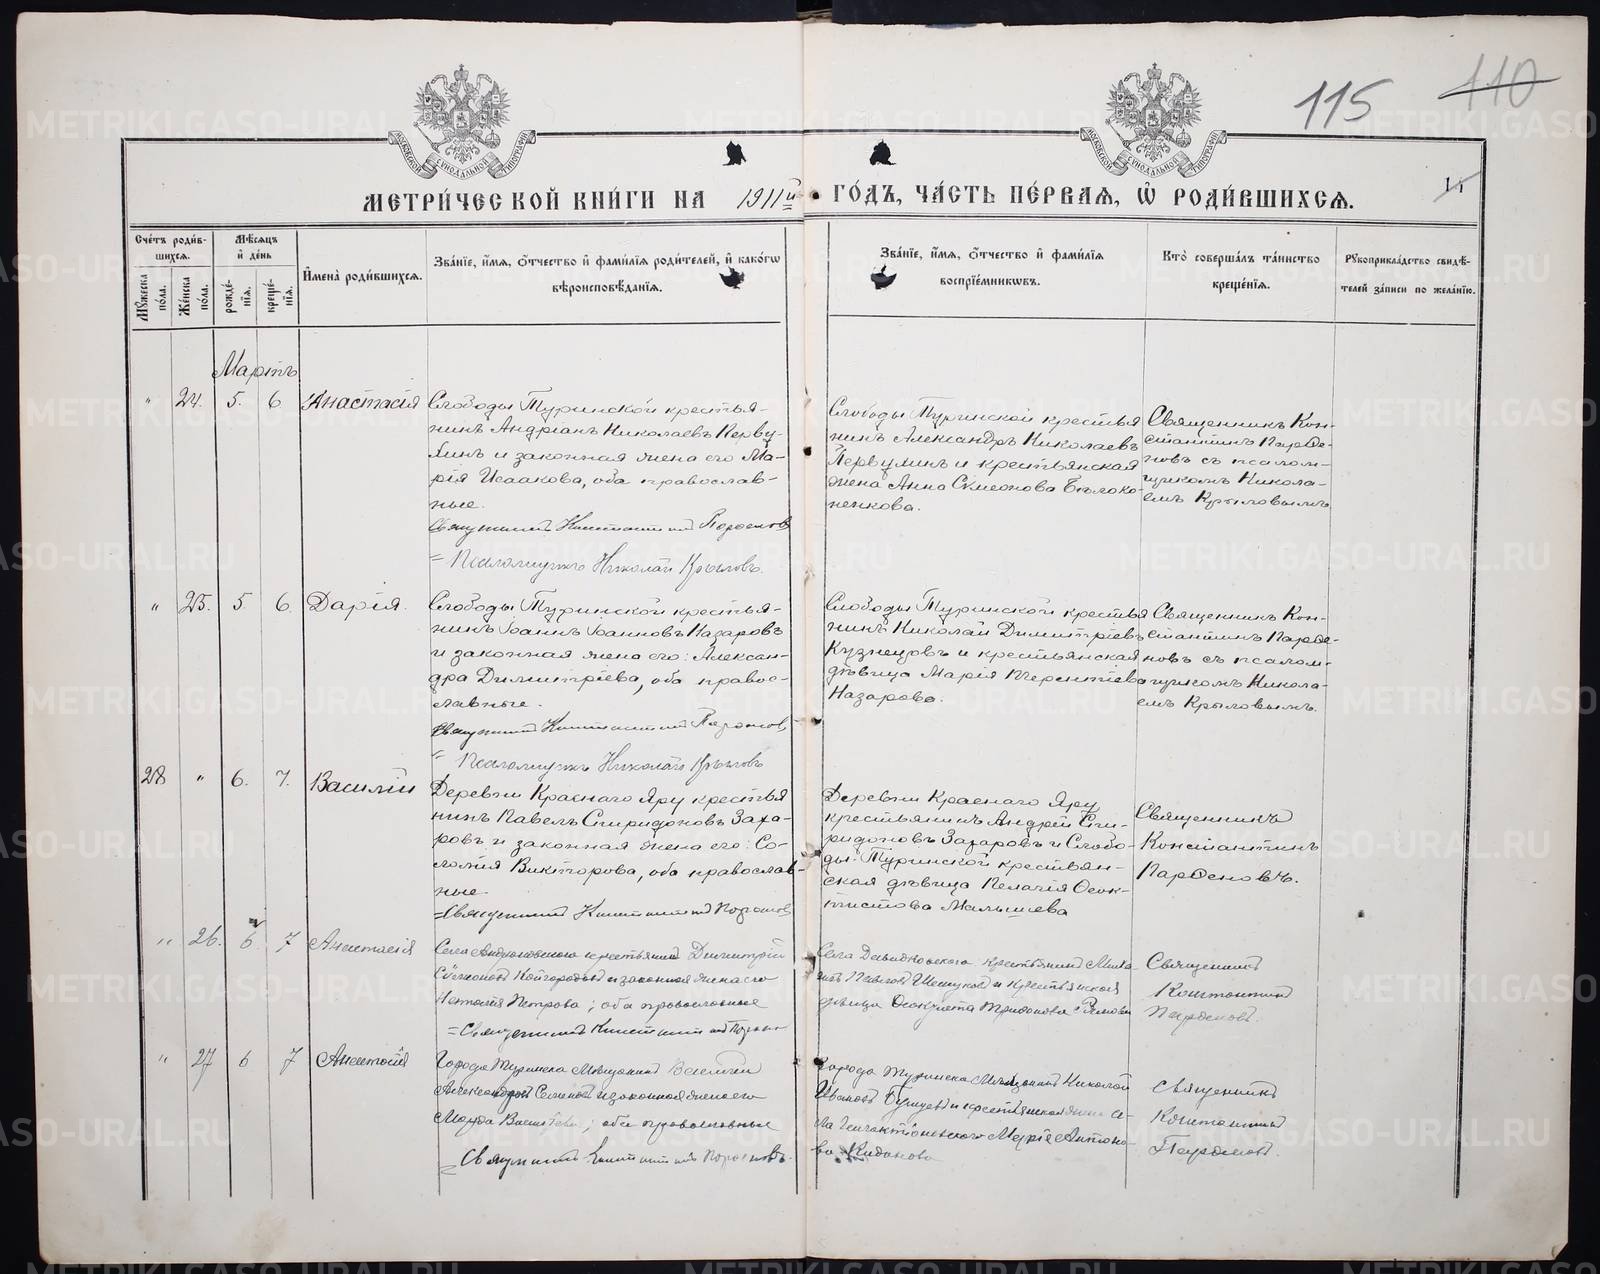 115
110
11
МОСКОВСКОЙ СѴНОДАЛЬНОЙ ТИПОГРАФІИ
МОСКОВСКОЙ СѴНОДАЛЬНОЙ ТИПОГРАФІИ
МЕТРИ́ЧЕСКОЙ КНИ́ГИ НА 1911й ГО́ДЪ, ЧА́СТЬ ПЕ́РВАѦ, Ѡ҆ РОДИ́ВШИХСѦ.
Сче́тъ роди́в-
шихсѧ.
Мꙋ́жеска по́ла.
Же́нска по́ла.
Мѣ́сѧцъ
и҆ де́нь
рожде́-
нїѧ.
креще́-
нїѧ.
И҆мена̀ роди́вшихсѧ.
Зва́нїе, и҆́мѧ, ѻ҆́тчество и҆ фами́лїѧ роди́телей, и҆ како́гѡ
вѣроисповѣ́данїѧ.
Зва́нїе, и҆́мѧ, ѻ҆́тчество и҆ фами́лїѧ
воспрїе́мникѡвъ.
Кто̀ соверша́лъ та́инство
креще́нїѧ.
Рꙋкоприкла́дство свидѣ́-
телей за́писи по жела́нїю.
Мартъ
" 24. 5. 6 Анастасія
Слободы Туринской крестья-
нинъ Андріанъ Николаевъ Перву-
хинъ и законная жена его Ма-
рія Исаакова, оба православ-
ные.
Священникъ Константинъ Парѳеновъ
= Псаломщикъ Николай Крыловъ.
Слободы Туринской крестья
нинъ Александръ Николаевъ
Первухинъ и крестьянская
жена Анна Сѵмеонова Бѣлоко-
ненкова.
Священникъ Кон-
стантинъ Парѳе-
новъ съ псалом-
щикомъ Никола-
емъ Крыловымъ
" 25. 5. 6. Дарія.
Слободы Туринской крестья-
нинъ Іоаннъ Іоанновъ Назаровъ
и законная жена его: Алексан-
дра Димитріева, оба правос-
лавные.
Священникъ Константинъ Парѳеновъ
" Псаломщикъ Николай Крыловъ
Слободы Туринской крестья
нинъ Николай Димитріевъ
Кузнецовъ и крестьянская
дѣвица Марія Терентіева
Назарова.
Священникъ Кон-
стантинъ Парѳе-
новъ съ псалом-
щикомъ Никола-
емъ Крыловымъ.
28 " 6. 7. Василій
Деревни Краснаго Яру крестья
нинъ Павелъ Спиридоновъ Заха-
ровъ и законная жена его: Со-
ломія Викторова, оба православ-
ные.
=Священникъ Константинъ Парѳеновъ
Деревни Краснаго Яру
крестьянинъ Андрей Спи-
ридоновъ Захаровъ и Слобо-
ды Туринской крестьян-
ская дѣвица Пелагія Ѳеок-
тистова Малышева
Священникъ
Константинъ
Парѳеновъ.
" 26. 6 7 Анастасія
Села крестьянинъ Димитрій
Сѵмеоновъ и законная жена его
Наталія Петрова; оба православные
=Священникъ Константинъ Парѳеновъ
Села крестьянинъ
Павловъ и крестьянская
дѣвица
Священникъ
Константинъ
Парѳеновъ.
" 27 6 7 Анастасія
Города Туринска Мѣщанинъ Василій
Александровъ и законная жена его
Марѳа; оба православные
= Священникъ Константинъ Парѳеновъ.
Города Туринска Мѣщанинъ Николай
Ивановъ и крестьянская жена се-
ла Марія Антоно-
ва
Священникъ
Константинъ
Парѳеновъ.
METRIKI.GASO-URAL.RU